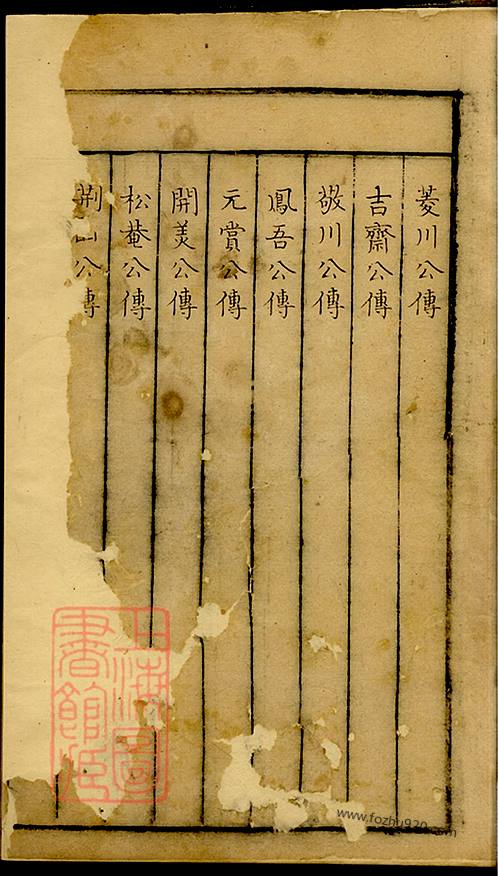 菱川公傳
吉齋公傳
敬川公傳
鳳吾公傳
元賞公傳
開美公傳
松菴公傳
荆山公傳
上海圖書館藏
www.fozhu920.com